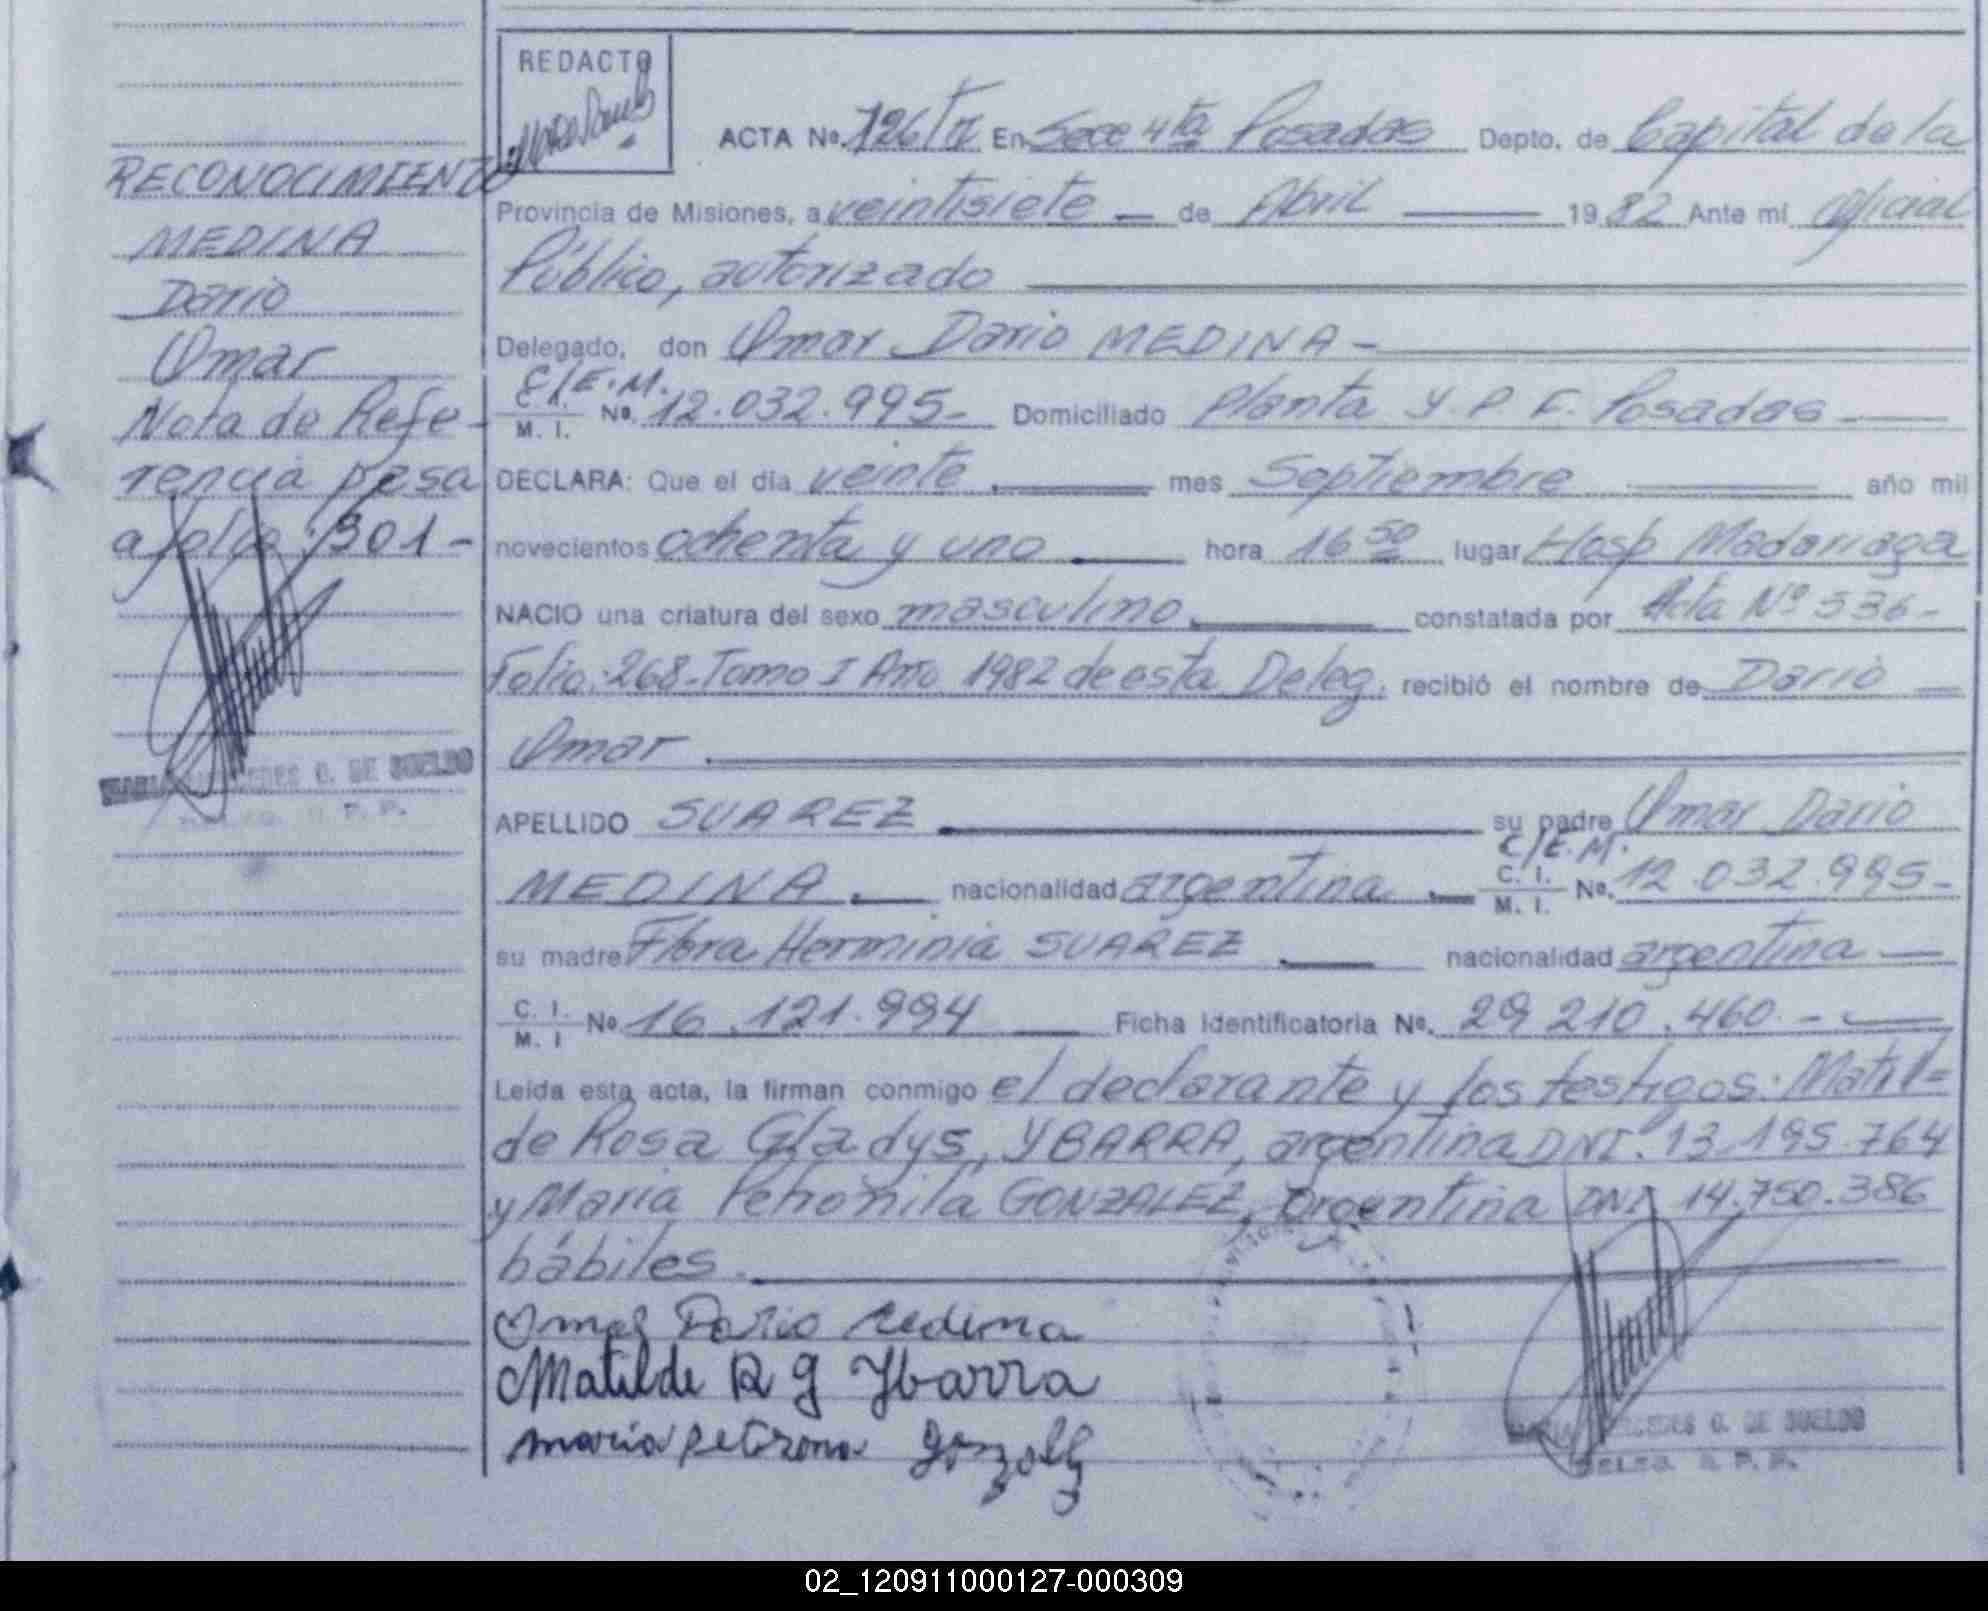 REDACTO
ACTA No. 726/ En Secc 4ta Posadas Depto. de Capital de la
RECONOCIMIENTO
Provincia de Misiones, a veintisiete de Abril 1982 Ante mi oficial
MEDINA
Público, autorizado
Dario
Delegado, don Omar Dario MEDINA -
Omar
C/E.M.
C. I.
M. I.
No. 12.032.995- Domiciliado Planta Y.P.F. Posadas
Nota de Refe-
rencia pasa
a folio: 301-
DECLARA: Que el día veinte mes Septiembre año mil
novecientos ochenta y uno hora 16 50 lugar Hosp Madariaga
NACIO una criatura del sexo masculino constatada por Acta Nº 536-
Folio: 268- Tomo I Año 1982 de esta Deleg. recibió el nombre de Dario
Omar
O. DE SUELDO
APELLIDO SUAREZ su padre Omar Dario
C/E.M.
MEDINA. nacionalidad argentina. C. I. M. I. No. 12.032.995-
su madre Flora Herminia SUAREZ nacionalidad argentina
C. I. M. I No 16.121.994 Ficha Identificatoria No. 29 210.460.-
Leída esta acta, la firman conmigo el declarante y los testigos: Matil=
de Rosa Gladys, YBARRA, argentina DNI. 13.195.764
y Maria Petronila GONZALEZ, argentina DNI 14.750.386
hábiles.
Omar Dario Medina
Matilde R G Ybarra
maria petrona gonzalez
O. DE SUELDO
02_120911000127-000309